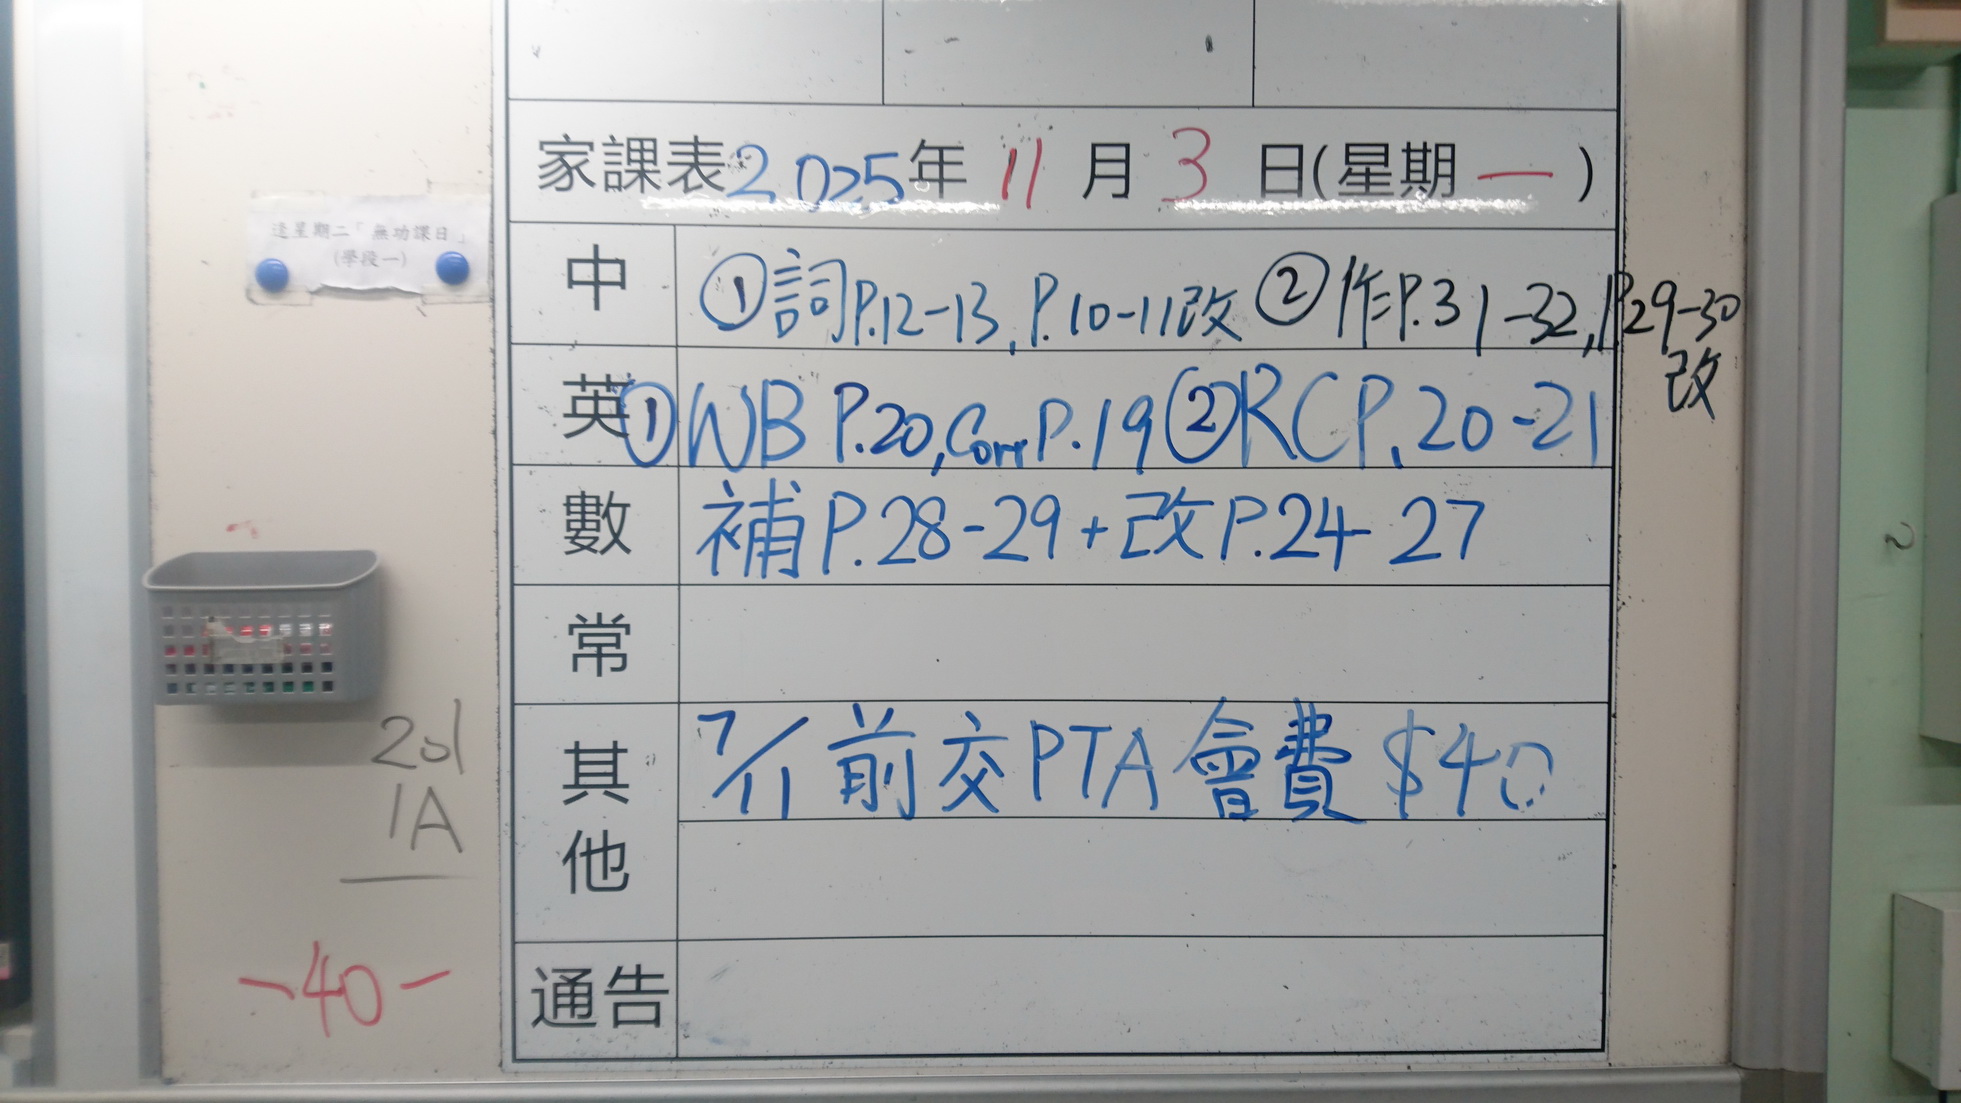 家課表2025年 11 月 3 日(星期一)
逢星期二「無功課日」
(學段一)
中 ①詞P.12-13, P.10-11改 ②作P.31-32, P.29-30
改
英 ①WB P.20, Corr P.19 ②RC P.20-21
數 補P.28-29+改P.24-27
常
其他 7/11前交PTA會費$40
通告
201
1A
-40-